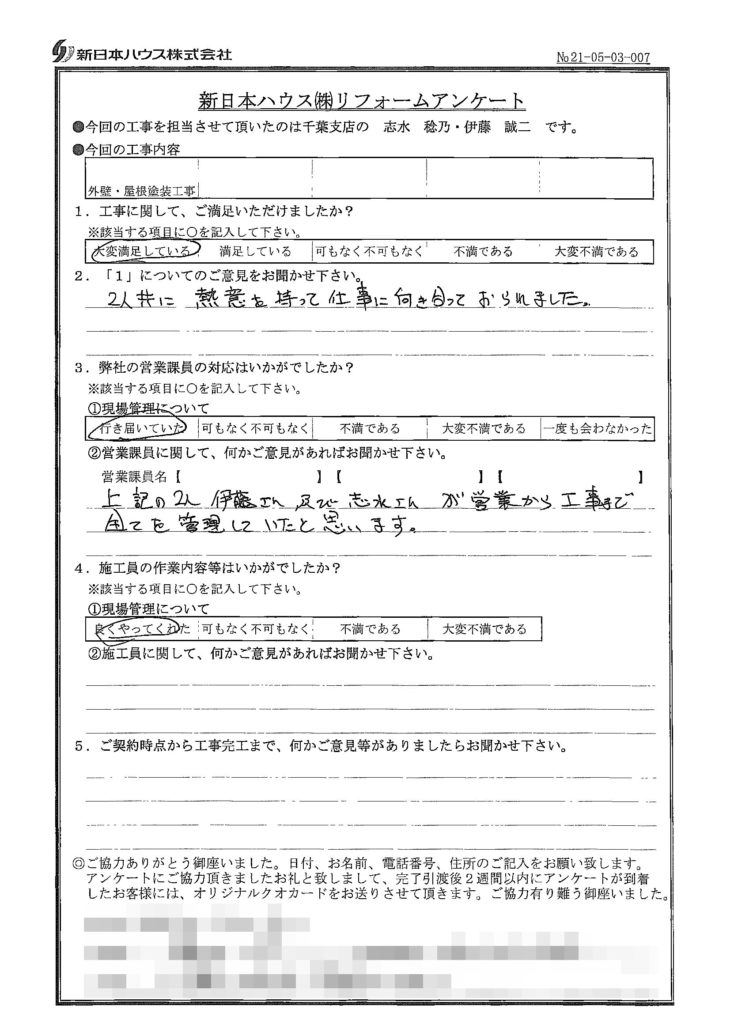 新日本ハウス株式会社
№21-05-03-007
新日本ハウス㈱リフォームアンケート
●今回の工事を担当させて頂いたのは千葉支店の 志水 稔乃・伊藤 誠二 です。
●今回の工事内容
外壁・屋根塗装工事
1．工事に関して、ご満足いただけましたか？
※該当する項目に〇を記入して下さい。
大変満足している 満足している 可もなく不可もなく 不満である 大変不満である
2．「1」についてのご意見をお聞かせ下さい。
2人共に 熱意を持って仕事に向き合って おられました。
3．弊社の営業課員の対応はいかがでしたか？
※該当する項目に〇を記入して下さい。
①現場管理について
行き届いていた 可もなく不可もなく 不満である 大変不満である 一度も会わなかった
②営業課員に関して、何かご意見があればお聞かせ下さい。
営業課員名【 】【 】【 】
上記の2人 伊藤さん 及び 志水さん が営業から工事まで
全てを管理していたと思います。
4．施工員の作業内容等はいかがでしたか？
※該当する項目に〇を記入して下さい。
①現場管理について
良くやってくれた 可もなく不可もなく 不満である 大変不満である
②施工員に関して、何かご意見があればお聞かせ下さい。
5．ご契約時点から工事完工まで、何かご意見等がありましたらお聞かせ下さい。
◎ご協力ありがとう御座いました。日付、お名前、電話番号、住所のご記入をお願い致します。
アンケートにご協力頂きましたお礼と致しまして、完了引渡後2週間以内にアンケートが到着
したお客様には、オリジナルクオカードをお送りさせて頂きます。ご協力有り難う御座いました。